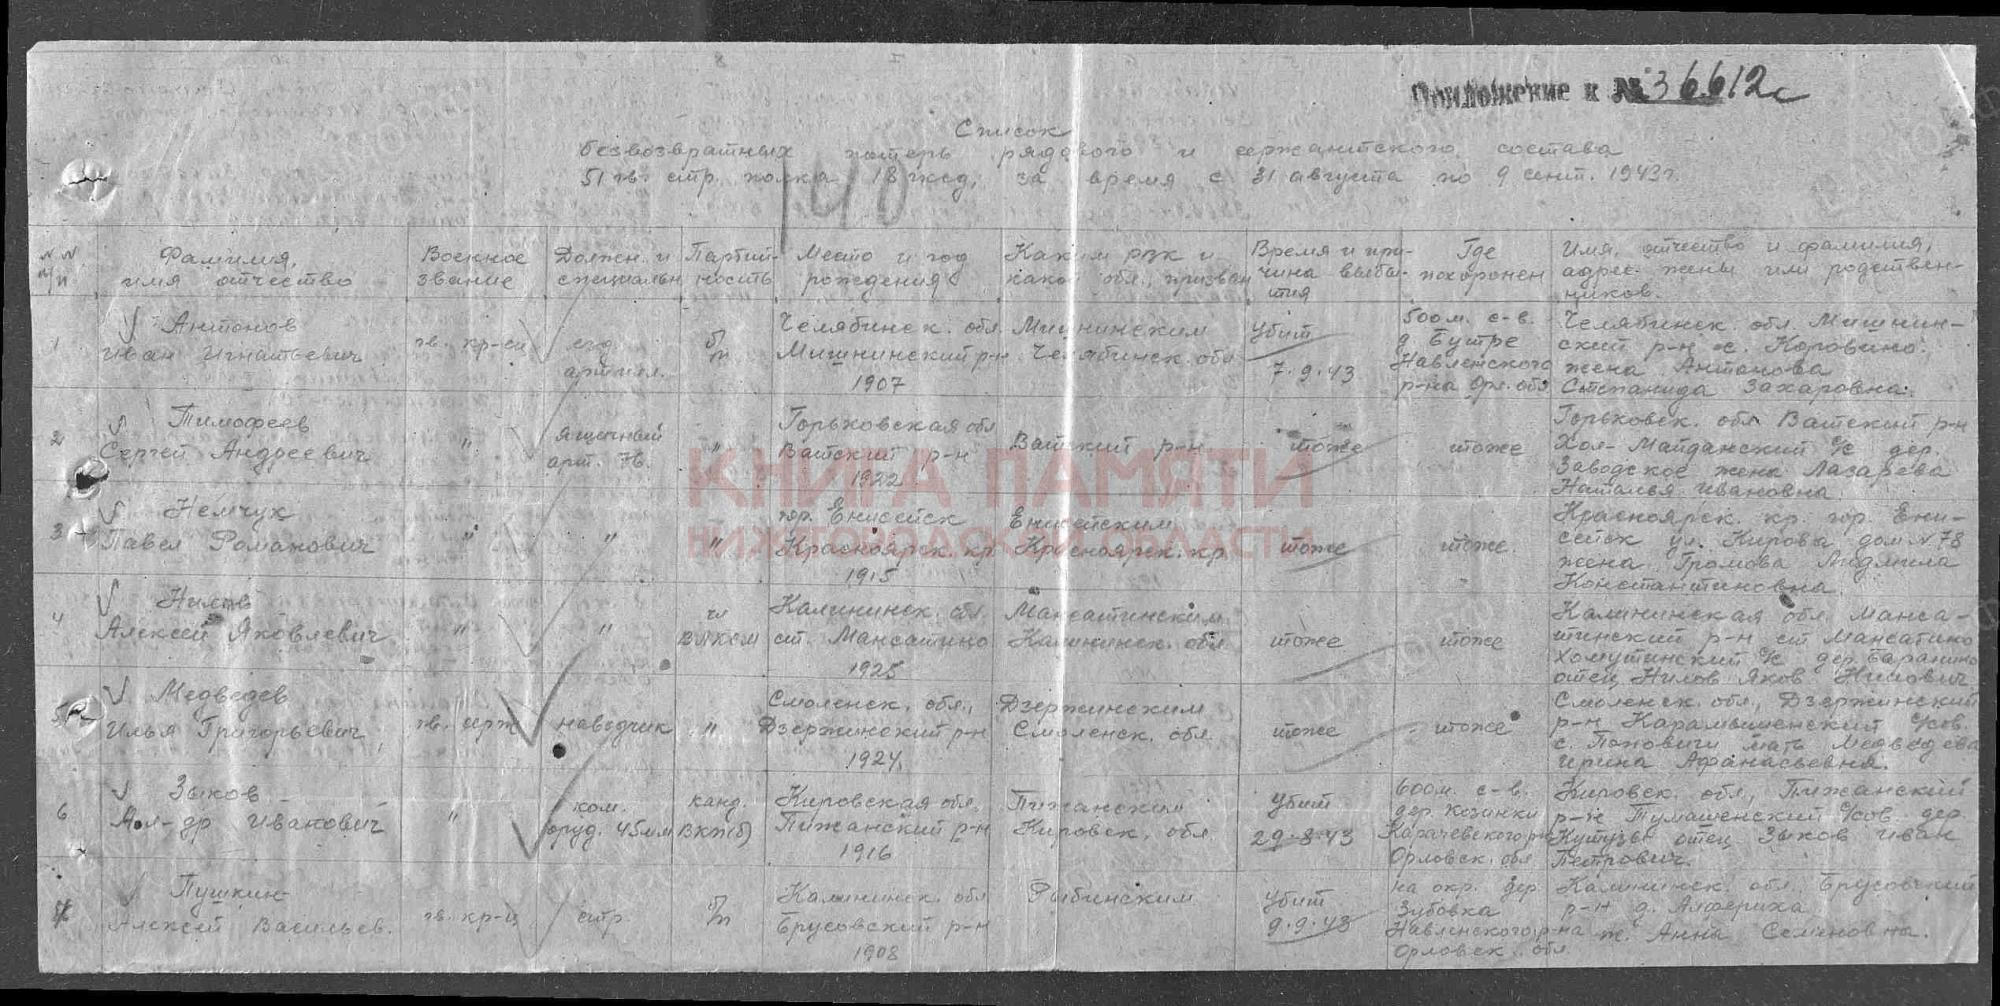 Приложение к № 36612с
Список
безвозвратных потерь рядового и сержантского состава
51 гв. стр. полка 18 гксд, за время с 31 августа по 9 сент. 1943 г.
№№ п/п
Фамилия, имя отчество
Военное звание
Должн. и специальн
Партий-ность
Место и год рождения
Каким рвк и какой обл., призван
Время и при-чина выбы-тия
Где похоронен
Имя, отчество и фамилия, адрес жены или родствен-ников.
1
Антонов
Иван Игнатьевич
гв. кр-ец
езд. артил.
б/п
Челябинск. обл.
Мишкинский р-н
1907
Мишкинским
Челябинск. обл
Убит
7.9.43
500 м. с-в.
д. Бутре
Навленского
р-на Орл. обл
Челябинск. обл. Мишкин-
ский р-н с. Коровино.
жена Антонова
Степанида Захаровна.
2
Тимофеев
Сергей Андреевич
"
ящичный
арт. 76.
"
Горьковская обл
Ватский р-н
1922
Ватский р-н
тоже
тоже
Горьковск. обл. Ватский р-н
Хол-Майданский с/с дер.
Заводское жена Лазарева
Наталья Ивановна
3
Немчук
Павел Романович
"
"
"
гор. Енисейск
Красноярск. кр
1915
Енисейским
Красноярск. кр
тоже
тоже.
Красноярск. кр. гор. Ени-
сейск ул. Кирова дом № 78
жена Громова Людмила
Константиновна
4
Нилов
Алексей Яковлевич
"
"
чл
ВЛКСМ
Калининск. обл.
ст. Мансатино
1925
Мансатинским
Калининск. обл
тоже
тоже
Калининская обл. Манса-
тинский р-н ст Мансатино
Хомутинский с/с дер. Баранино
отец Нилов Яков Нилович
5
Медведев
Илья Григорьевич
гв. серж
наводчик
"
Смоленск. обл.,
Дзержинский р-н
1924.
Дзержинским
Смоленск. обл.
тоже
тоже
Смоленск. обл., Дзержинский
р-н, Карамышенский с/сов.
с. Поповичи мать Медведева
Ирина Афанасьевна.
6
Зыков
Ал-др Иванович
"
ком.
оруд. 45мм
канд.
ВКП(б)
Кировская обл,
Пижанский р-н
1916
Пижанским
Кировск. обл.
Убит
29.8.43
600 м. с-в.
дер. Козинки
Карачевского р-на
Орловск. обл
Кировск. обл., Пижанский
р-н Тумашенский с/сов. дер.
Кутузы отец Зыков Иван
Петрович.
7
Пушкин
Алексей Васильев.
гв. кр-ц
стр.
б/п
Калининск. обл
Брусовский р-н
1908
Рыбинским
Убит
9.9.43
на окр. дер.
Зубовка
Навленского р-на
Орловск. обл
Калининск. обл., Брусовский
р-н д. Алфериха
ж. Анна Семеновна.
КНИГА ПАМЯТИ
НИЖЕГОРОДСКОЙ ОБЛАСТИ